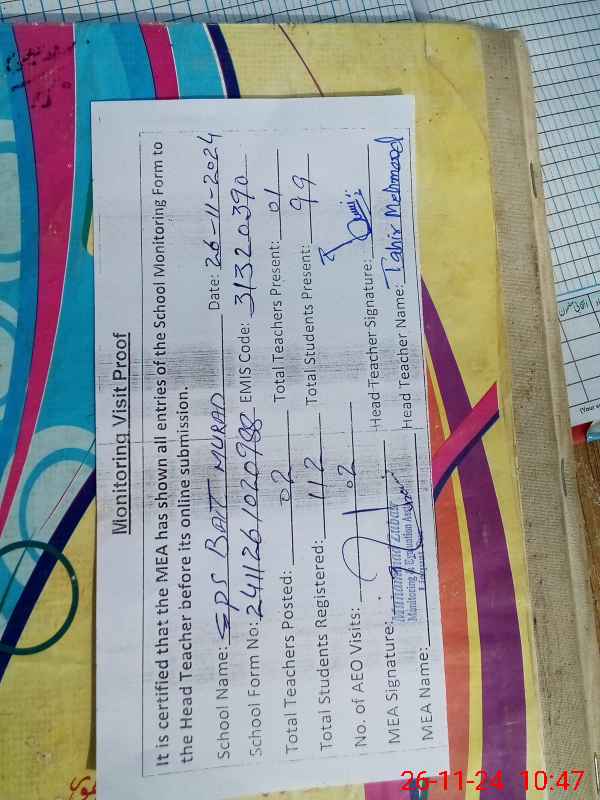 Monitoring Visit Proof
It is certified that the MEA has shown all entries of the School Monitoring Form to
the Head Teacher before its online submission.
School Name: GPS BAIT MURAD Date: 26-11-2024
School Form No: 2411261020988 EMIS Code: 31320390
Total Teachers Posted: 02 Total Teachers Present: 01
Total Students Registered: 112 Total Students Present: 99
No. of AEO Visits: 02
MEA Signature: Head Teacher Signature:
Muhammad
Monitoring & Evaluation
MEA Name: Head Teacher Name: Tahir Mehmood
26-11-24 10:47